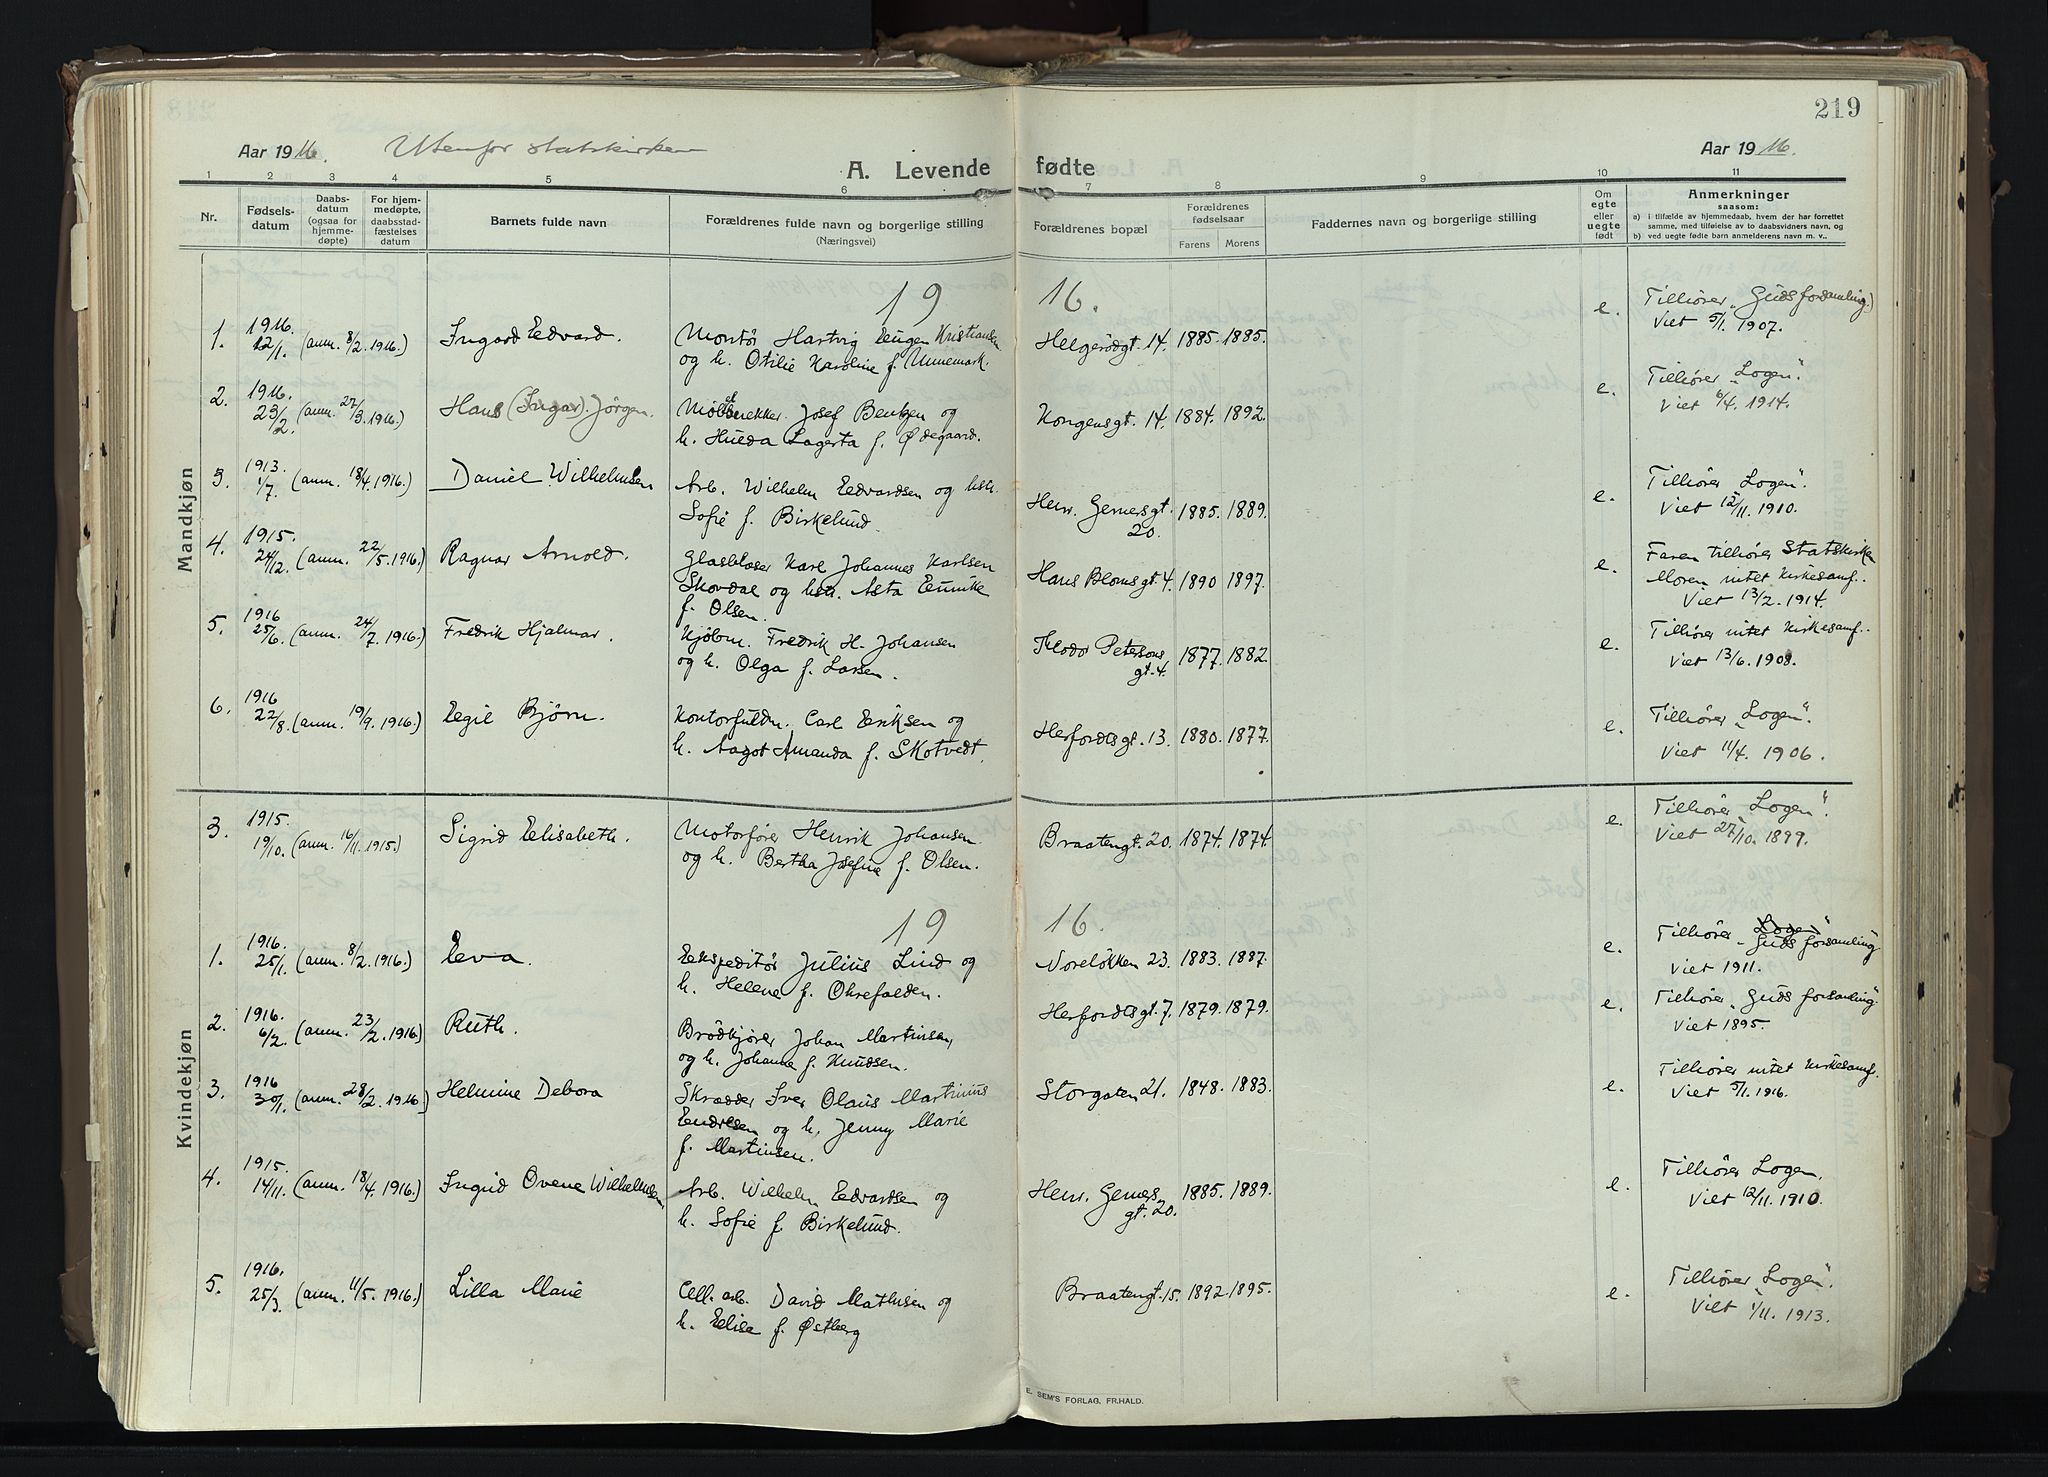 219
Aar 1916. Utenfor statskirken
Aar 1916.
A. Levende fødte
1 2 3 4 5 6 7 8 9 10 11
Nr.
Fødsels-
datum
Daabs-
datum
(ogsaa for
hjemme-
døpte)
For hjem-
medøpte,
daabsstad-
fæstelses
datum
Barnets fulde navn
Forældrenes fulde navn og borgerlige stilling
(Næringsvei)
Forældrenes bopæl
Forældrenes
fødselsaar
Farens Morens
Faddernes navn og borgerlige stilling
Om
egte
eller
uegte
født
Anmerkninger
saasom:
a) i tilfælde av hjemmedaab, hvem der har forrettet
samme, med tilføielse av to daabsvidners navn, og
b) ved uegte fødte barn anmelderens navn m. v..
Mandkjøn
19 16.
1. 1916. 12/1. (anm. 8/2. 1916.) Ingard Edvard. Montör Hartvig Eugen Kristiansen
og h. Otilie Karoline f. Unnemark. Helgerödgt. 14. 1885. 1885. e. Tilhörer „Guds forsamling.)
Viet 5/1. 1907.
2. 1916. 23/2. (anm. 27/3. 1916.) Hans (Ingar) Jörgen. Möbelsnekker Josef Bentzen og
h. Hulda Lagerta f. Ødegaard. Kongensgt. 14. 1884. 1892. e. Tilhörer „Logen".
Viet 6/4. 1914.
3. 1913. 1/7. (anm. 18/4. 1916.) Daniel Wilhelmsen Arb. Wilhelm Edvardsen og hstr.
Sofie f. Birkelund. Henr. Gernersgt. 20. 1885. 1889. e. Tilhörer Logen".
Viet 12/11. 1910.
4. 1915. 24/12. (anm. 22/5. 1916.) Ragnar Arnold. Glasblåser Karl Johannes Karlsen
Skovdal og hstr. Asta Eunike
f. Olsen. Hans Blomsgt. 4. 1890 1897. e. Faren tilhörer Statskirken
Moren intet Kirkesamf..
Viet 13/2. 1914.
5. 1916 25/6. (anm. 24/7. 1916.) Fredrik Hjalmar. Kjöbm. Fredrik H. Johansen
og h. Olga f. Larsen. Thodor Petersons gt. 4. 1877. 1882. e. Tilhörer intet Kirkesamf..
Viet 13/6. 1908.
6. 1916 22/8. (anm. 19/9. 1916.) Egil Björn. Kontorfuldm. Carl Eriksen og
h. Aagot Amanda f. Skotvedt. Herfordtsgt. 13. 1880. 1877. e. Tilhörer „Logen".
Viet 11/4. 1906.
Kvindekjøn
3. 1915. 19/10. (anm. 16/11. 1915.) Sigrid Elisabeth. Motorförer Henrik Johansen
og h. Bertha Josefine f. Olsen. Braatengt. 20. 1874. 1874. e. Tilhörer „Logen".
Viet 27/10. 1899.
19 16.
1. 1916. 25/1. (anm. 8/2. 1916.) Eva. Ekspeditör Julius Lind og
h. Helene f. Ohrefalden. Noreløkken 23. 1883. 1887. e. Tilhörer Logen" „Guds forsamling"
Viet 1911.
2. 1916. 6/2. (anm. 23/2. 1916.) Ruth. Brödkjörer Johan Martinsen,
og h. Johanne f. Knudsen. Herfordtsgt. 7. 1879. 1879. e. Tilhörer „Guds forsamling".
Viet 1895.
3. 1916 30/1. (anm. 28/2. 1916.) Helmine Debora Skrædder Iver Olaus Martinius
Endresen og h. Jenny Marie
f. Martinsen. Storgaten 21. 1848. 1883. e. Tilhörer intet Kirkesamf.
Viet 5/1. 1916.
4. 1915. 14/11. (anm. 18/4. 1916.) Ingrid Ovene Wilhelmsen Arb. Wilhelm Edvardsen og
h. Sofie f. Birkelund. Henr. Gerners gt. 20. 1885. 1889. e. Tilhörer Logen.
Viet 12/11. 1910.
5. 1916. 25/3. (anm. 11/5. 1916.) Lilla Marie Cell. arb. David Mathisen og
h. Elise f. Østberg Braatengt. 15. 1892. 1895. e. Tilhörer „Logen".
Viet 1/11. 1913.
E. SEM'S FORLAG, FR.HALD.